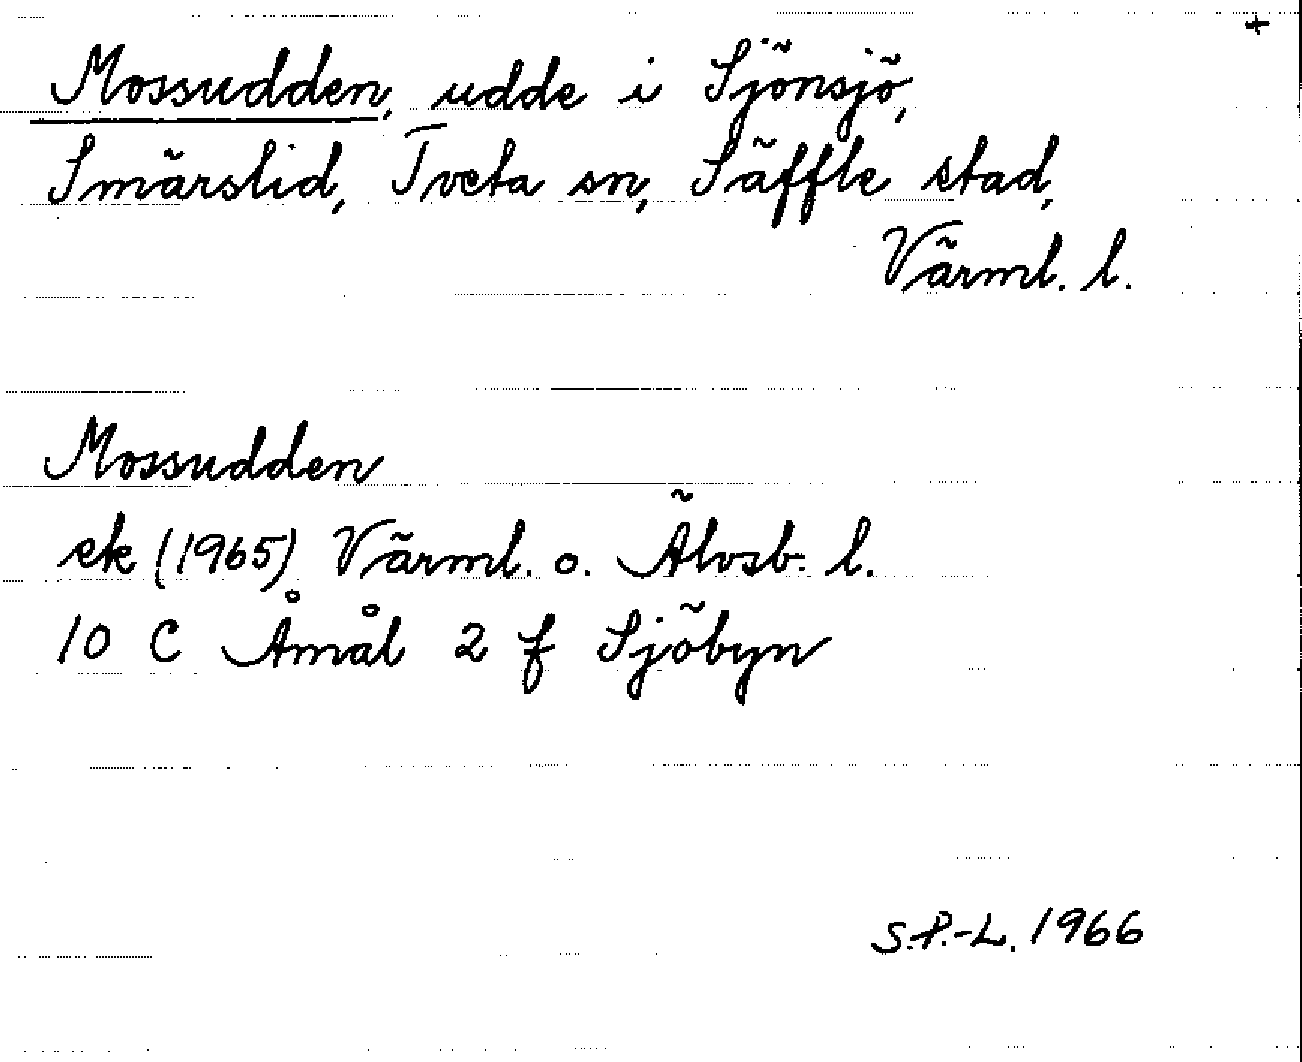 +
Mossudden, udde i Sjönsjö,
Smärslid, Tveta sn, Säffle stad,
Värml. l.
Mossudden
ek (1965) Värml. o. Älvsb. l.
10 C Åmål 2 f Sjöbyn
S.P.-L. 1966